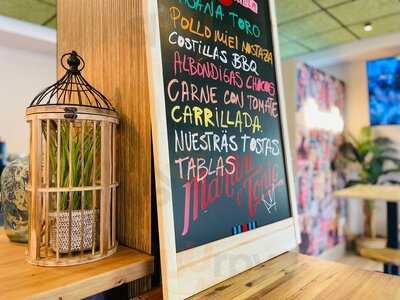 TORO
POLLO MIEL NOSTAZA
COSTILLAS BBQ
ALBÓNDIGAS CHOCOS
CARNE CON TOMATE
CARRILLADA.
NUESTRÄS TOSTAS
TABLAS